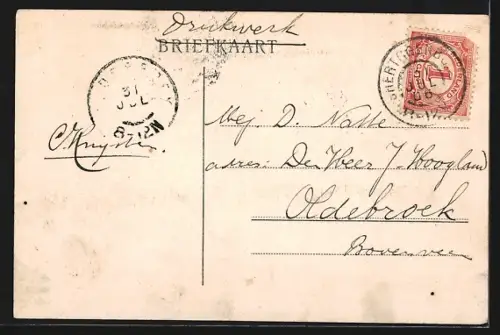 Drukwerk
BRIEFKAART
31
JUL
8-12N
'S HERTOGENBOSCH
1
Mej. D. Natte
adres: Den Heer J. Hoogland
Oldebroek
Bovenveen